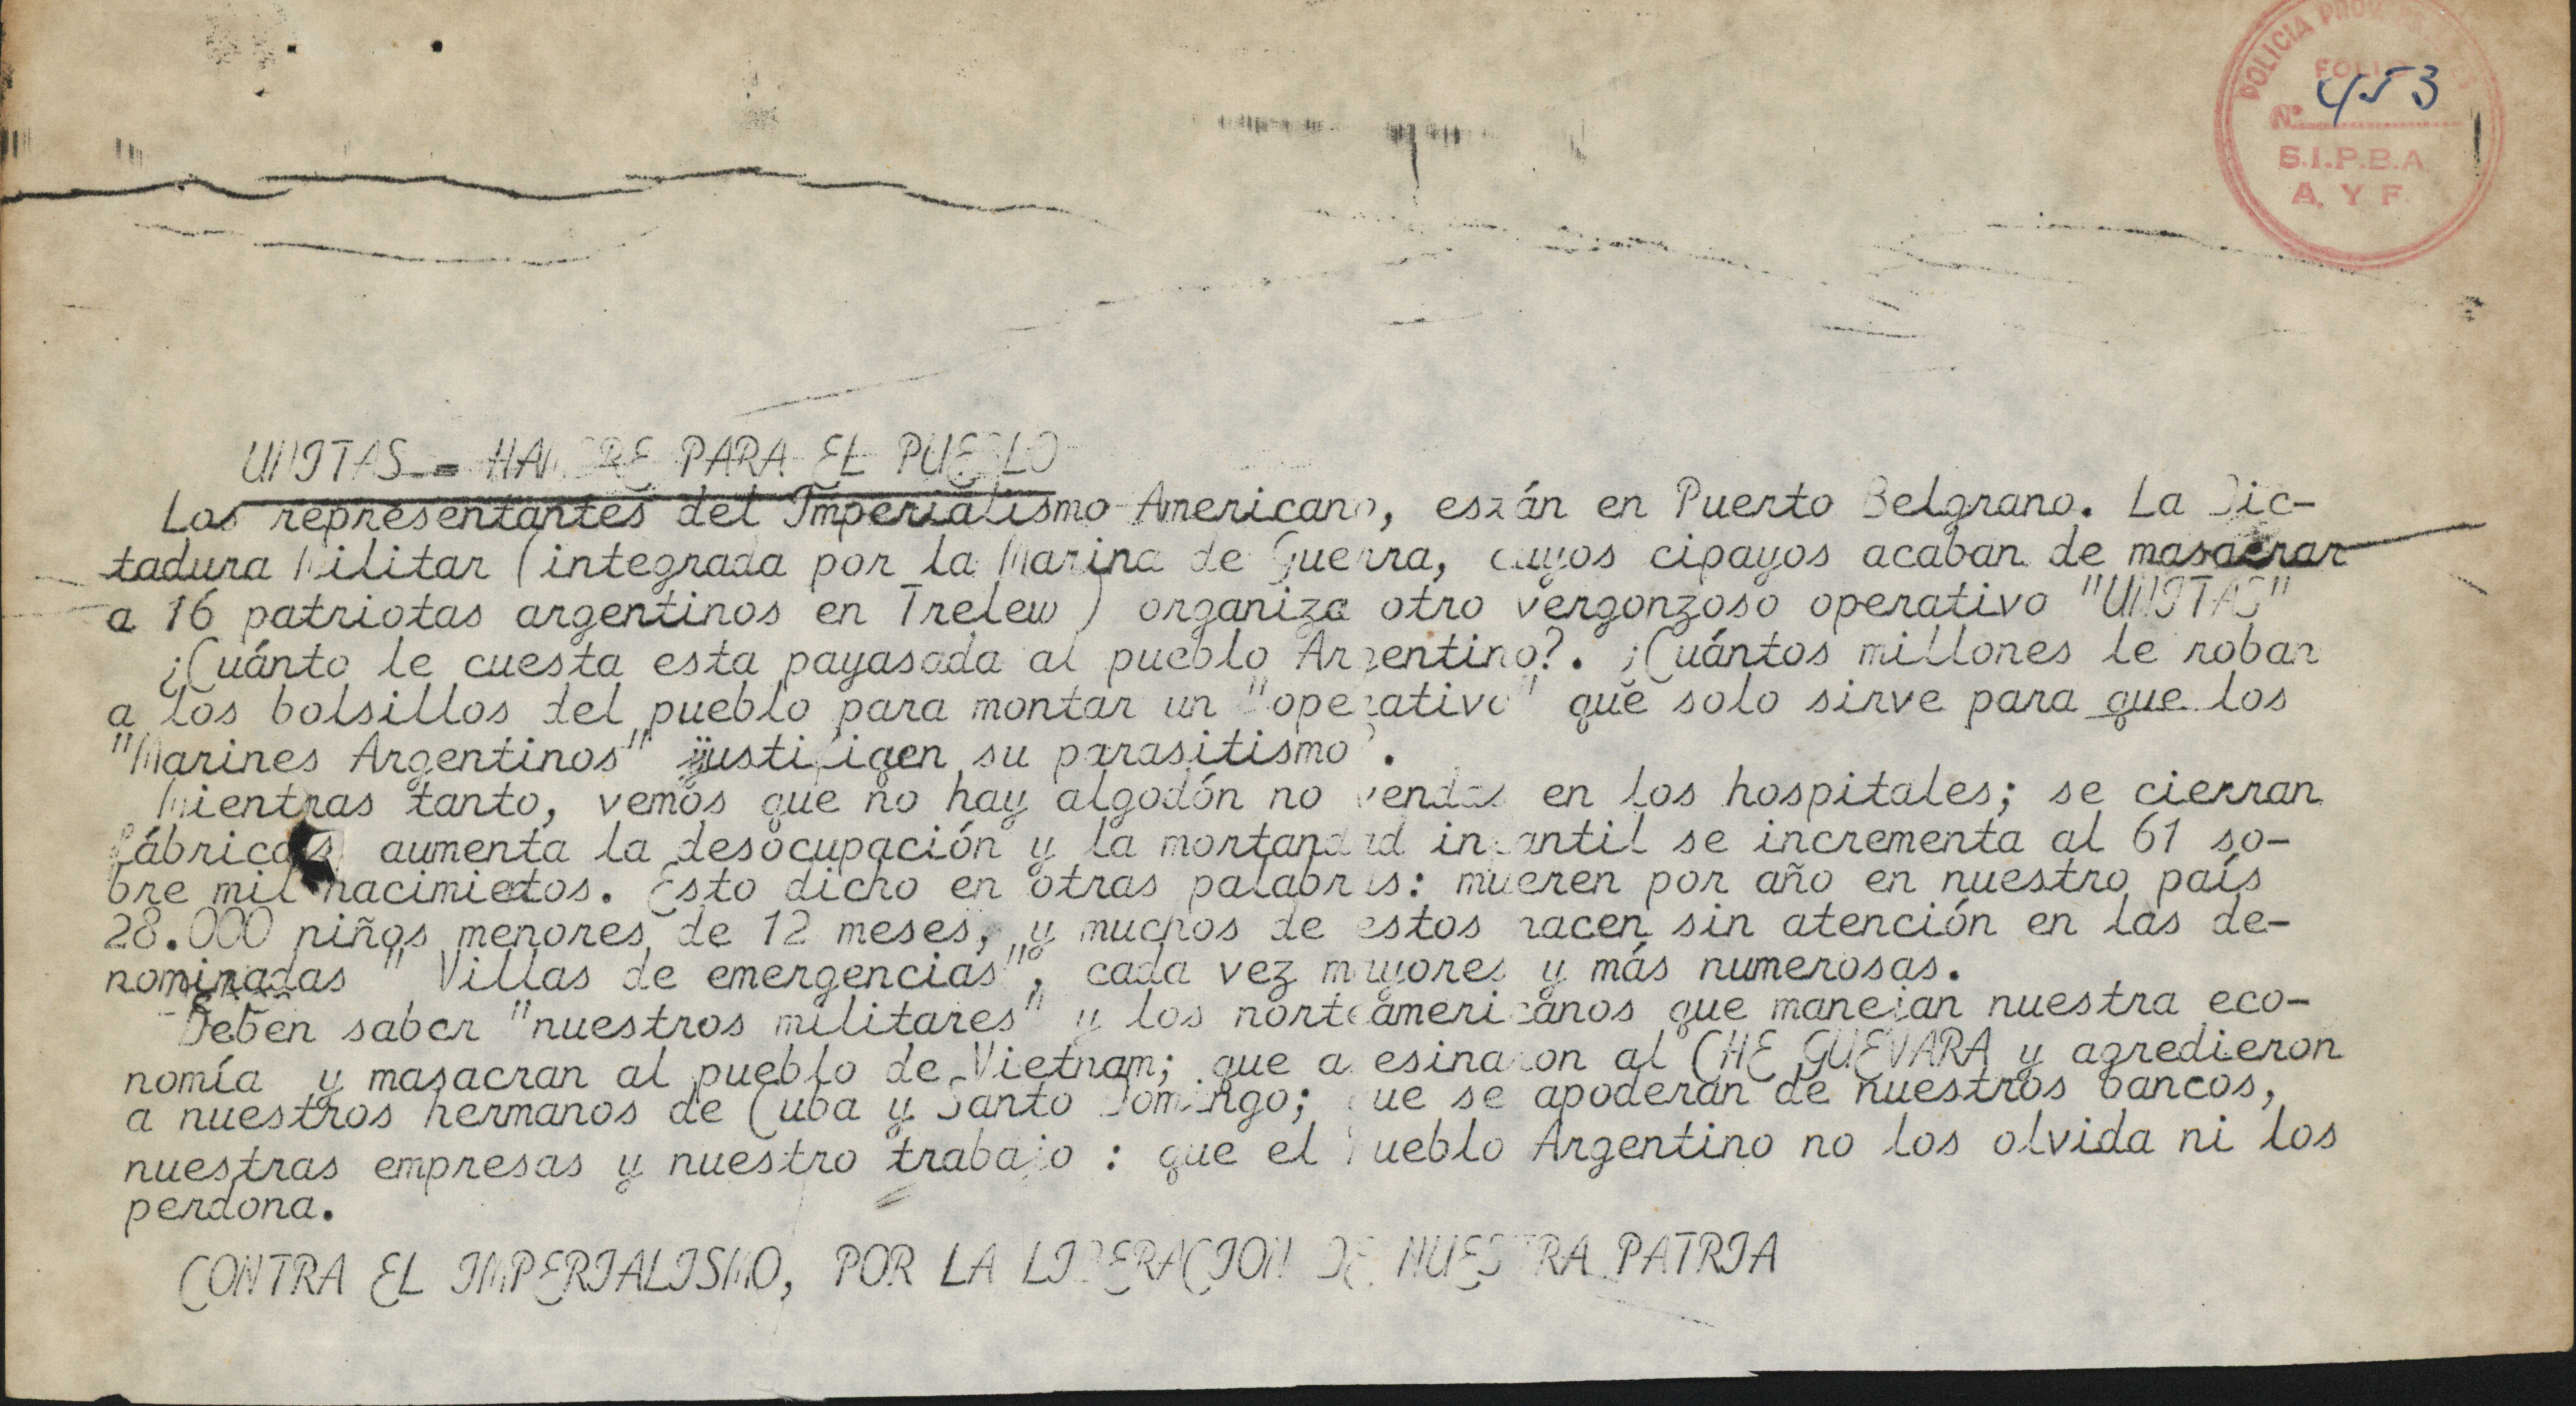 POLICIA
FOLIO
Nº 453
S.I.P.B.A
A. Y F.
UNITAS - HAMBRE PARA EL PUEBLO
Los representantes del Imperialismo Americano, están en Puerto Belgrano. La Dic-
tadura Militar (integrada por la Marina de Guerra, cuyos cipayos acaban de masacrar
a 16 patriotas argentinos en Trelew) organiza otro vergonzoso operativo "UNITAS"
¿Cuánto le cuesta esta payasada al pueblo Argentino?. ¿Cuántos millones le roban
a los bolsillos del pueblo para montar un "operativo" que solo sirve para que los
"Marines Argentinos" justifiquen su parasitismo?.
Mientras tanto, vemos que no hay algodón no vendas en los hospitales; se cierran
fábricas, aumenta la desocupación y la mortandad infantil se incrementa al 61 so-
bre mil nacimietos. Esto dicho en otras palabras: mueren por año en nuestro país
28.000 niños menores de 12 meses, y muchos de estos nacen sin atención en las de-
nominadas " Villas de emergencias", cada vez mayores y más numerosas.
Deben saber "nuestros militares" y los norteamericanos que manejan nuestra eco-
nomía y masacran al pueblo de Vietnam; que asesinaron al CHE GUEVARA y agredieron
a nuestros hermanos de Cuba y Santo Domingo; que se apoderan de nuestros bancos,
nuestras empresas y nuestro trabajo : que el Pueblo Argentino no los olvida ni los
perdona.
CONTRA EL IMPERIALISMO, POR LA LIBERACION DE NUESTRA PATRIA